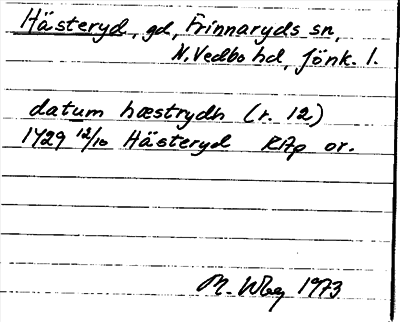 Hästeryd, gd, Frinnaryds sn,
N. Vedbo hd, Jönk. l.
datum hæstrydh (r. 12)
1429 12/10 Hästeryd RAp or.
M. Wbg 1973